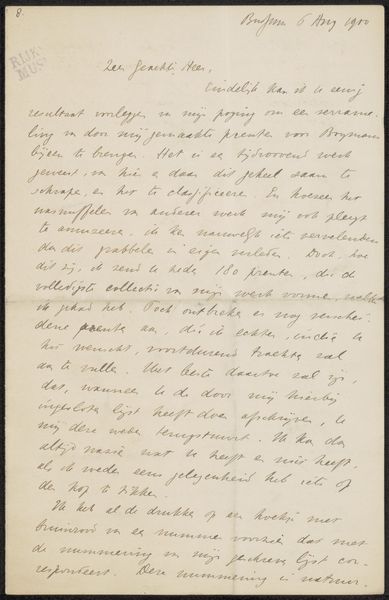 8.
RIJKS
MUS
Bussum 6 Aug 1900
Zeer Geachte Heer,
Eindelijk kan ik u eenig
resultaat voorleggen van mijn poging om een verzame-
ling van door mij gemaakte prenten voor Boymans
bijeen te brengen. Het is een tijdroovend werk
geweest, van hier en daar dit geheel saam te
schrapen, en het te classificeeren. En hoezeer het
van anderer werk mij ook pleegt
te amuseeren, ik ken nauwelijks iets vervelenders
dan dit grabbelen in eigen verleden. Doch, hoe
dit zij, ik zend u hede 180 prenten, die de
volledigste collectie van mijn werk vormen, welke
ik gehad heb. Toch ontbreken er nog verschei-
dene prenten aan, die ik echter, indien u
het wenscht, voortdurend trachten zal
aan te vullen. Het beste daartoe zal zijn,
dat, wanneer u de door mij hierbij
ingesloten lijst heeft doen afschrijven, u
mij deze weder terugstuurt. Ik kan dan
altijd nazien wat u heeft en niet heeft,
als ik weder eens gelegenheid heb iets op
den kop te tikken.
Ik heb al de drukken op een hoekje met
van een nummer voorzien dat met
de nummering van mijn geschreven lijst cor-
respondeert. Deze nummering is natuur-